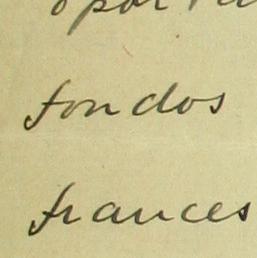 fondos
frances